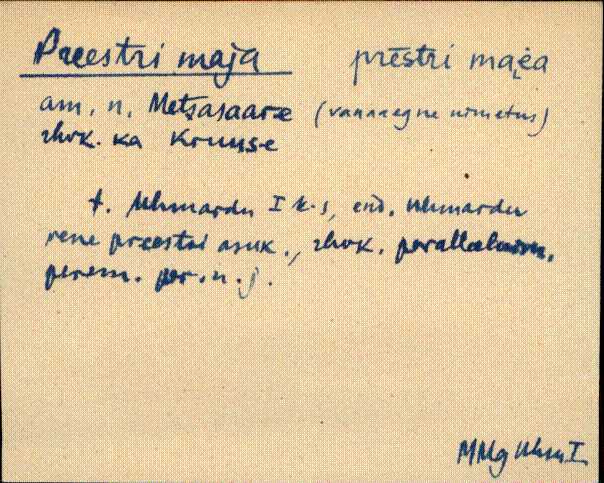 Preestri maja prēstri maja
am. n. Metsasaare (vanaaegne nimetus)
rhvk. ka Kruuse
t. Uhmardu I k-s, end. Uhmardu
vene preestri asuk., rhvk. parallelnim.
perem. pr. n. j.
MMg Uhm I